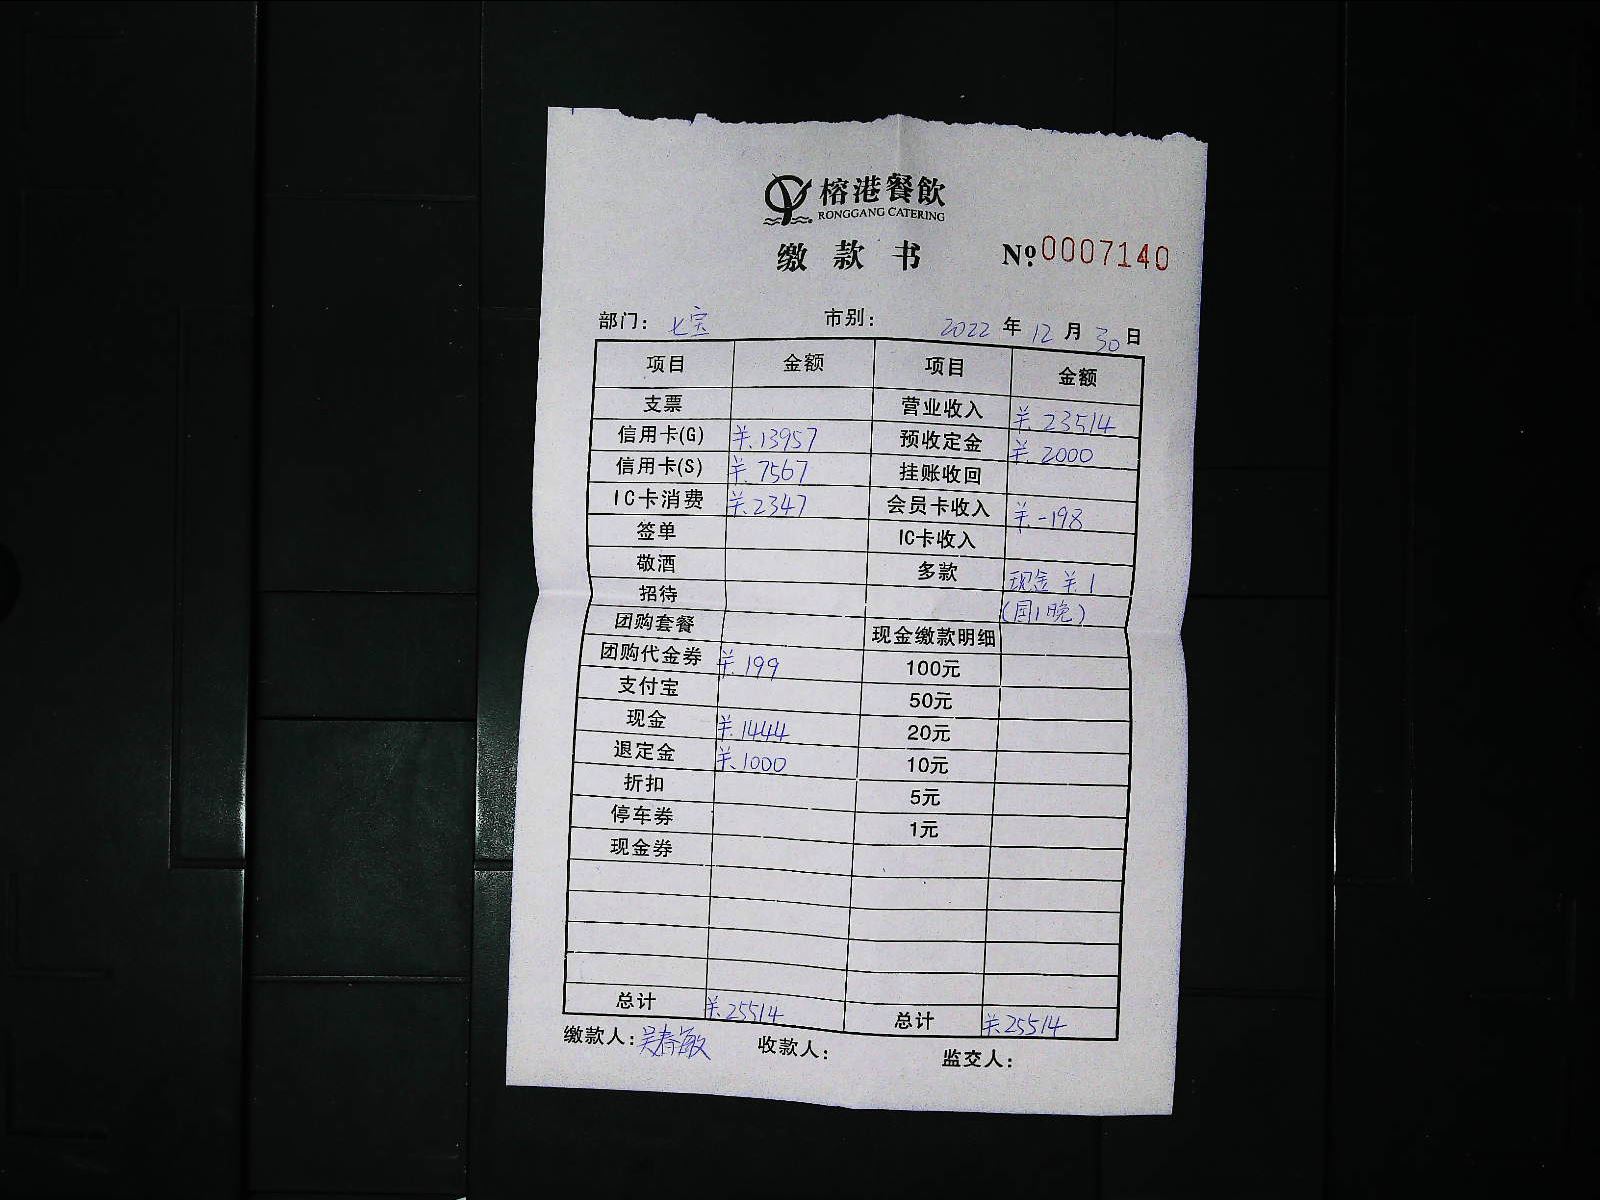 榕港餐飲
RONGGANG CATERING
缴款书 №0007140
部门：七宝 市别： 2022年12月30日
项目 金额 项目 金额
支票 营业收入 ¥.23514
信用卡(G) ¥.13957 预收定金 ¥.2000
信用卡(S) ¥.7567 挂账收回
IC卡消费 ¥.2347 会员卡收入 ¥.-198
签单 IC卡收入
敬酒 多款 现金 ¥.1
招待 (国1晚)
团购套餐 现金缴款明细
团购代金券 ¥.199 100元
支付宝 50元
现金 ¥.1444 20元
退定金 ¥.1000 10元
折扣 5元
停车券 1元
现金券
总计 ¥.25514 总计 ¥.25514
缴款人：吴春敏 收款人： 监交人：